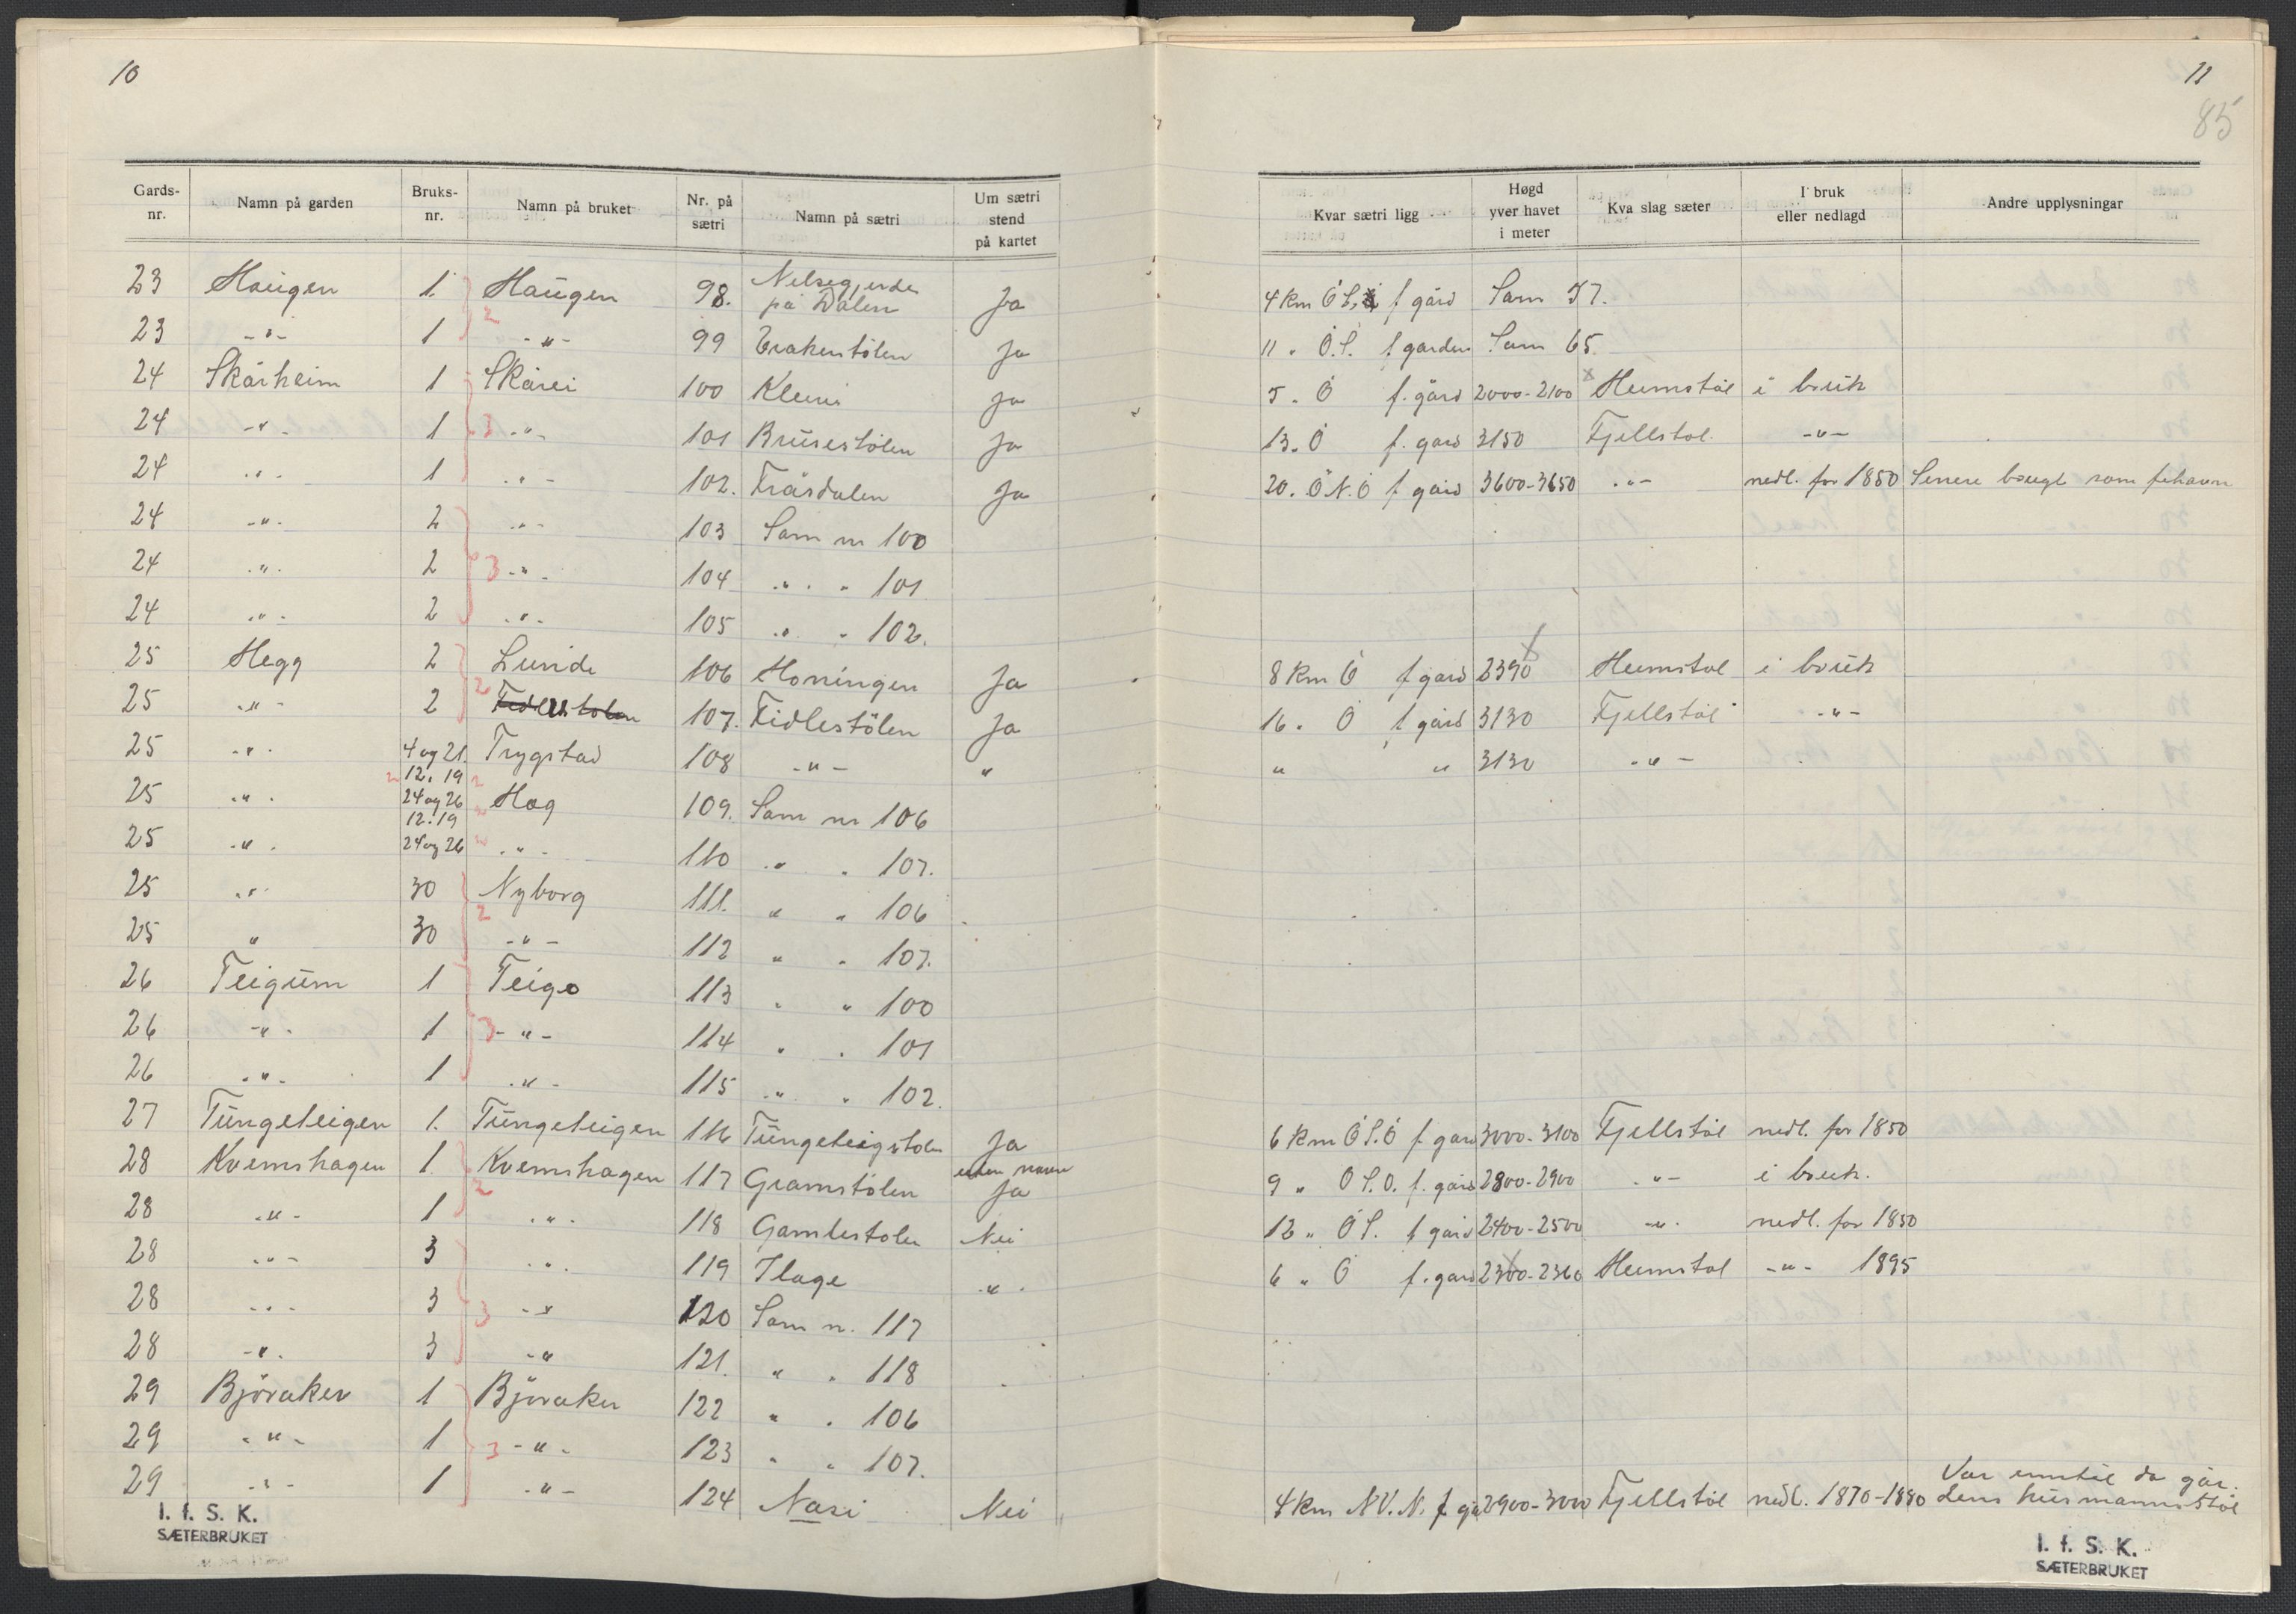 10
Gards-nr. Namn på garden Bruks-nr. Namn på bruket Nr. på sætri Namn på sætri Um sætri stend på kartet
23 Haugen 1. Haugen 98. Nelsegjerde på Dålen Ja
23 -"- 1 2 -"- 99 Trakenstölen Ja
24 Skårheim 1 Skårei 100 Kleivi Ja
24 -"- 1 3 -"- 101 Brusestölen Ja
24 -"- 1 -"- 102. Fråsdalen Ja
24 -"- 2 -"- 103 Sam nr 100
24 -"- 2 3 -"- 104 " " 101
24 -"- 2 -"- 105 " " 102.
25 Hegg 2 Lunde 106 Honingen Ja
25 -"- 2 2 Fidlestolen 107. Fidlestölen Ja
25 -"- 4 og 21. Trygstad 108 -"- "
25 -"- 2 12. 19 24 og 26 2 Hag 109. Sam nr 106
25 -"- 12. 19 24 og 26 -"- 110 " " 107.
25 -"- 30 Nyborg 111. " " 106
25 " 30 2 -"- 112 " " 107.
26 Teigum 1 Teigo 113 " " 100
26 -"- 1 3 -"- 114 " " 101
26 -"- 1 -"- 115 " " 102.
27 Tungeteigen 1. Tungeteigen 116 Tungeteigstolen Ja
28 Kvemshagen 1. Kvemshagen 117 Gramstölen uten navn Ja
28 -"- 1 2 -"- 118 Gamlestolen Nei
28 -"- 3 -"- 119 Ilage -"-
28 -"- 3 3 -"- 120 Sam n. 117
28 -"- 3 -"- 121. " " 118
29 Björaker 1 Björaker 122 " " 106
29 -"- 1 3 -"- 123 " " 107.
29 -"- 1 -"- 124 Nasi Nei
I. f. S. K.
SÆTERBRUKET
11
85
Kvar sætri ligg Høgd yver havet i meter Kva slag sæter I bruk eller nedlagd Andre upplysningar
4 km Ö S, f gård Sam 57.
11 " Ö.S. f garden Sam 65.
5 " Ö f. gård 2000-2100 x Heimstöl i bruk
13 " Ö f. gard 3150 Fjellstol -"-
20 " Ö N. Ö f gård 3600-3650 -"- nedl. for 1850 Senere brugt som fehavn
8 km Ö f gard 2390 x Heimstol i bruk
16 " Ö f gård 3130 Fjellstöl -"-
" " 3130 -"-
6 km Ö S. Ö f gard 3000-3100 Fjellstöl nedl. for 1850
9 " Ö S. Ö. f. gård 2800-2900 -"- i bruk.
12 " Ö S. f gård 2400-2500 -"- nedl. for 1850
6 " Ö f. gard 2300-2360 Heimstol -"- 1895
4 km N V. N. f gå 2900-3000 Fjellstöl nedl. 1870-1880 Var inntil da går-
dens husmannsstöl
I. f. S. K.
SÆTERBRUKET